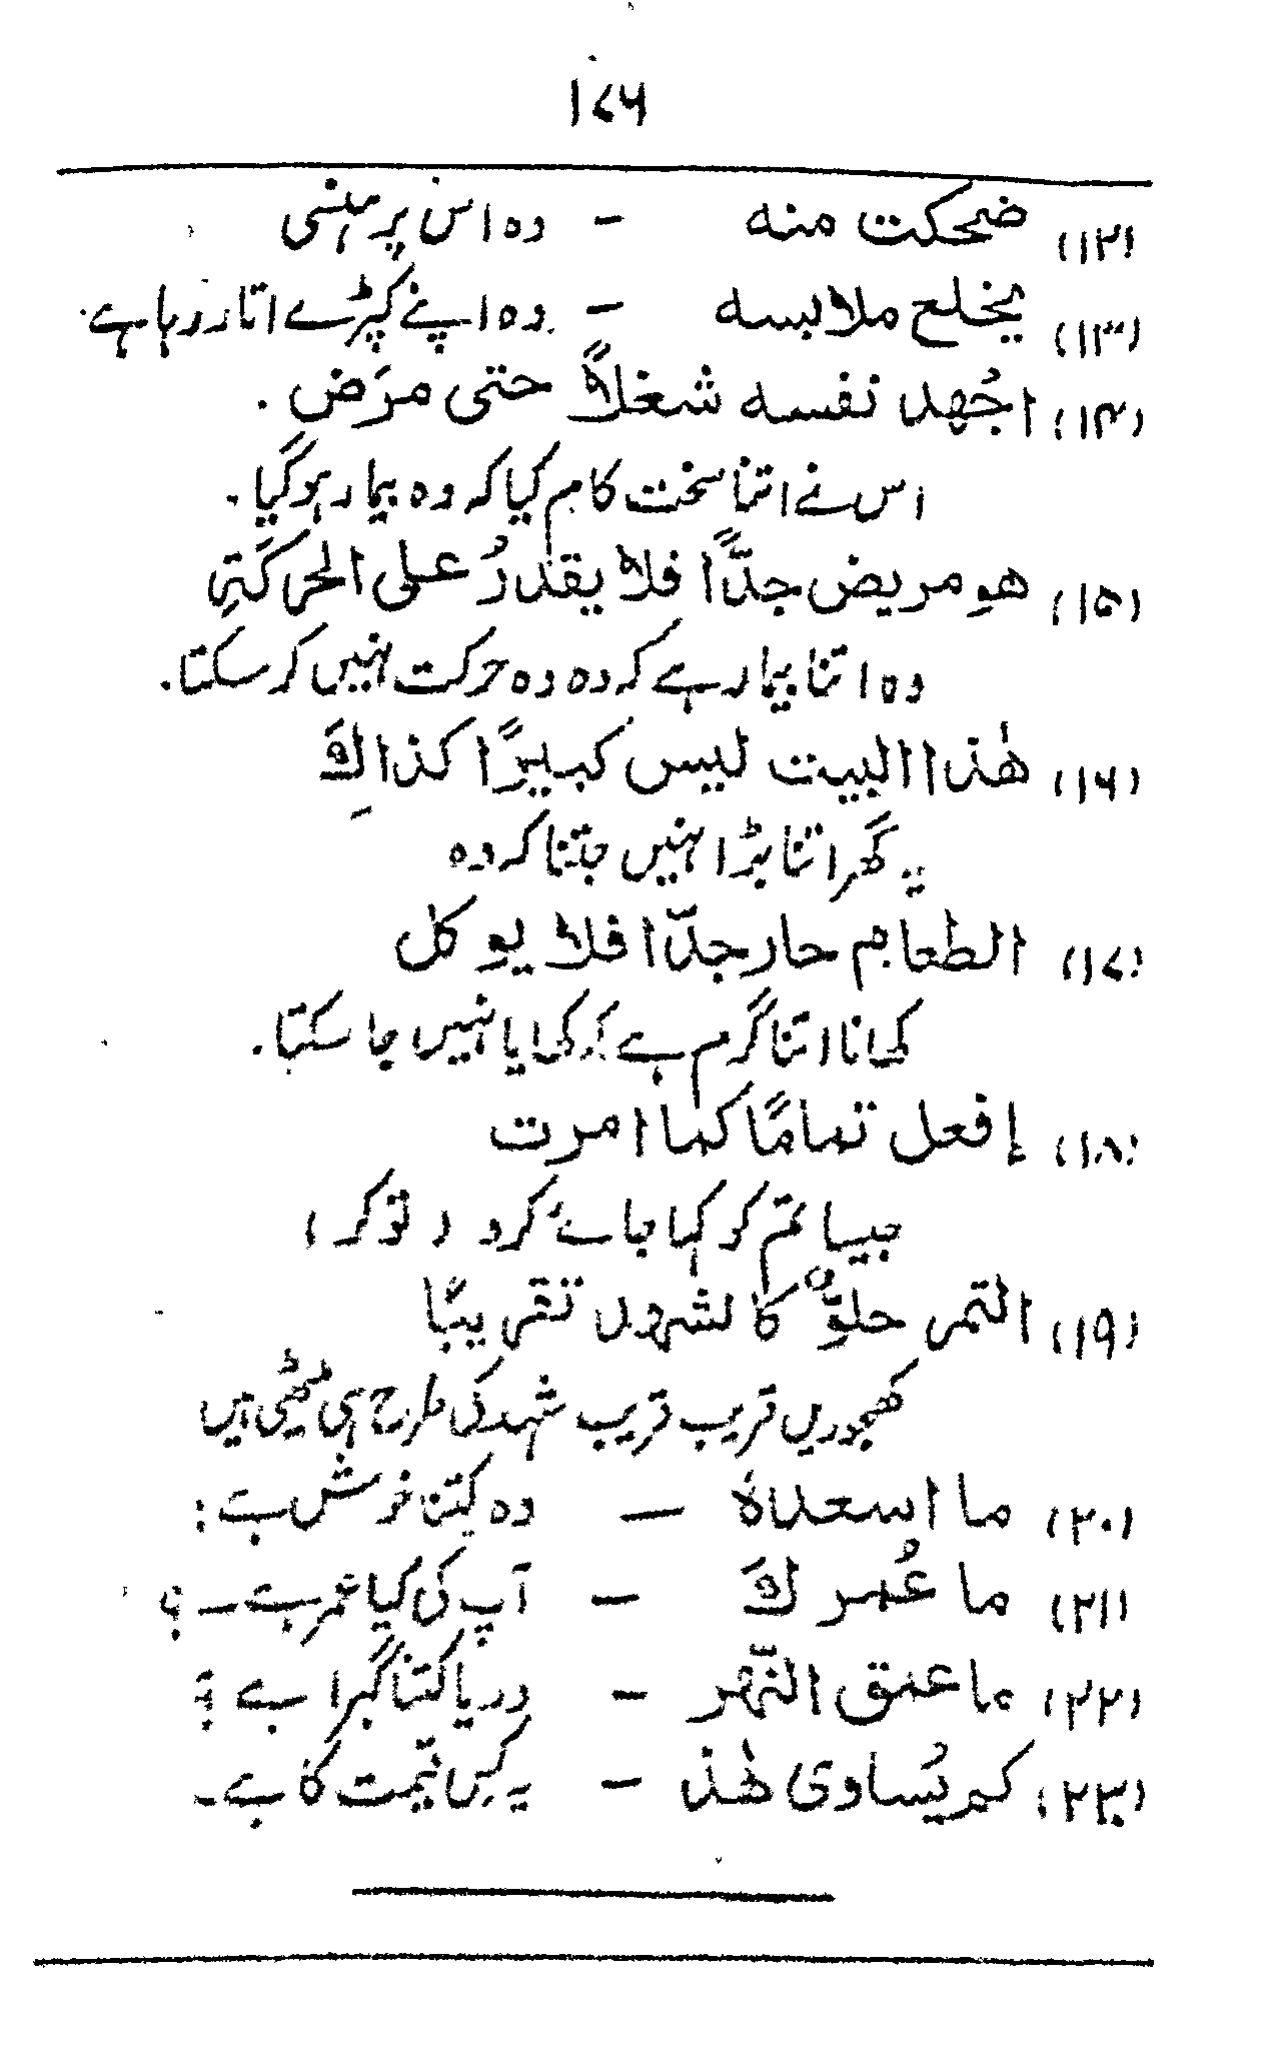 ۱۷۶
(۱۲) ضحكت منه – وہ اس پر ہنسی
(۱۳) يخلع ملابسه – وہ اپنے کپڑے اتار رہا ہے۔
(۱۴) اجُهد نفسه شغلاً حتى مرَض ۔
اس نے اتنا سخت کام کیا کہ وہ بیمار ہوگیا۔
(۱۵) هو مريض جدًّا فلا يقدرُ على الحركَتِہ
وہ اتنا بیمار ہے کہ وہ وہ حرکت نہیں کر سکتا۔
(۱۶) هٰذا البيت ليس كبيرًا كذالِكَ
یہ گھر اتنا بڑا نہیں جتنا کہ وہ
(۱۷) الطعام حار جدّا فلا يوكل
کھانا اتنا گرم ہے کہ کھایا نہیں جا سکتا۔
(۱۸) إفعل تمامًا كما امرت
جیسا تم کو کہا جائے کرو (توکر)
(۱۹) التمر حلوٌّ كالشهد تقريبًا
کھجوریں قریب قریب شہد کی طرح ہی میٹھی ہیں
(۲۰) ما اسعدہٗ – وہ کتنا خوش ہے :
(۲۱) ما عُمرك – آپ کی کیا عمر ہے – ؟
(۲۲) ما عمق النّهر – دریا کتنا گہرا ہے ؟
(۲۳) كم يُساوى هٰذ – یہ کس قیمت کا ہے ۔